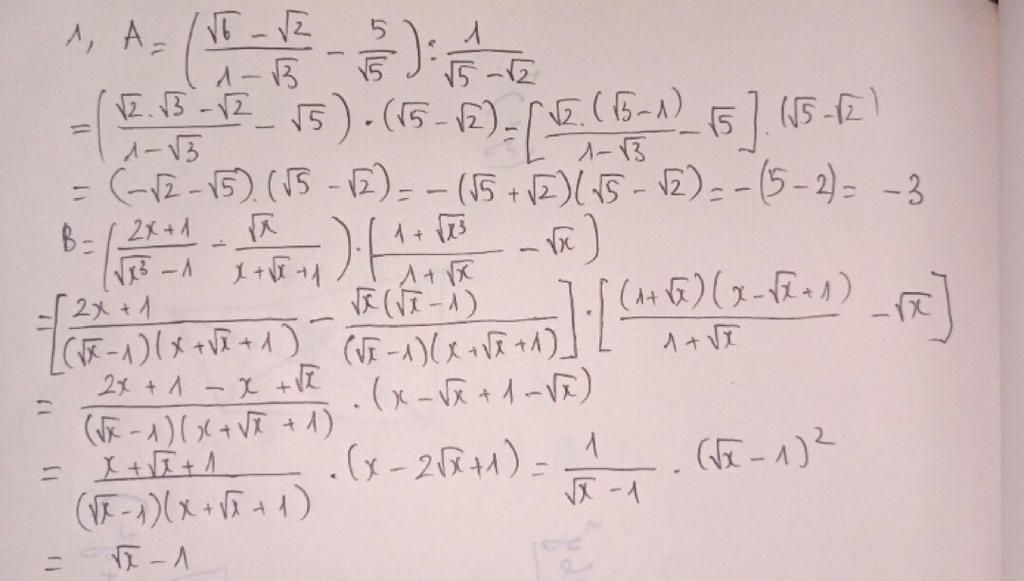 1, A = ( (√6 - √2)/(1 - √3) - 5/√5 ) : 1/(√5 - √2)
= ( (√2.√3 - √2)/(1 - √3) - √5 ) . (√5 - √2) = [ (√2.(√3 - 1))/(1 - √3) - √5 ] . (√5 - √2)
= (-√2 - √5).(√5 - √2) = -(√5 + √2)(√5 - √2) = -(5 - 2) = -3
B = ( (2x + 1)/(√x³ - 1) - √x/(x + √x + 1) ) . ( (1 + √x³)/(1 + √x) - √x )
= [ (2x + 1)/((√x - 1)(x + √x + 1)) - (√x(√x - 1))/((√x - 1)(x + √x + 1)) ] . [ ((1 + √x)(x - √x + 1))/(1 + √x) - √x ]
= (2x + 1 - x + √x)/((√x - 1)(x + √x + 1)) . (x - √x + 1 - √x)
= (x + √x + 1)/((√x - 1)(x + √x + 1)) . (x - 2√x + 1) = 1/(√x - 1) . (√x - 1)²
= √x - 1